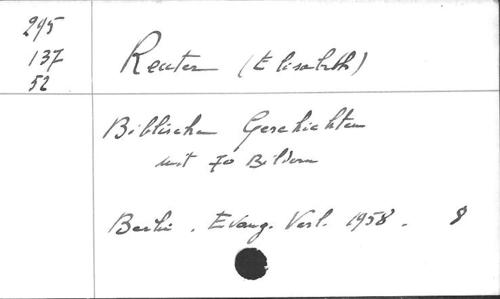 295
137
52
Reuter (Elisabeth)
Biblischen Geschichten
mit 70 Bildern
Berlin. Evang. Verl. 1958. 8